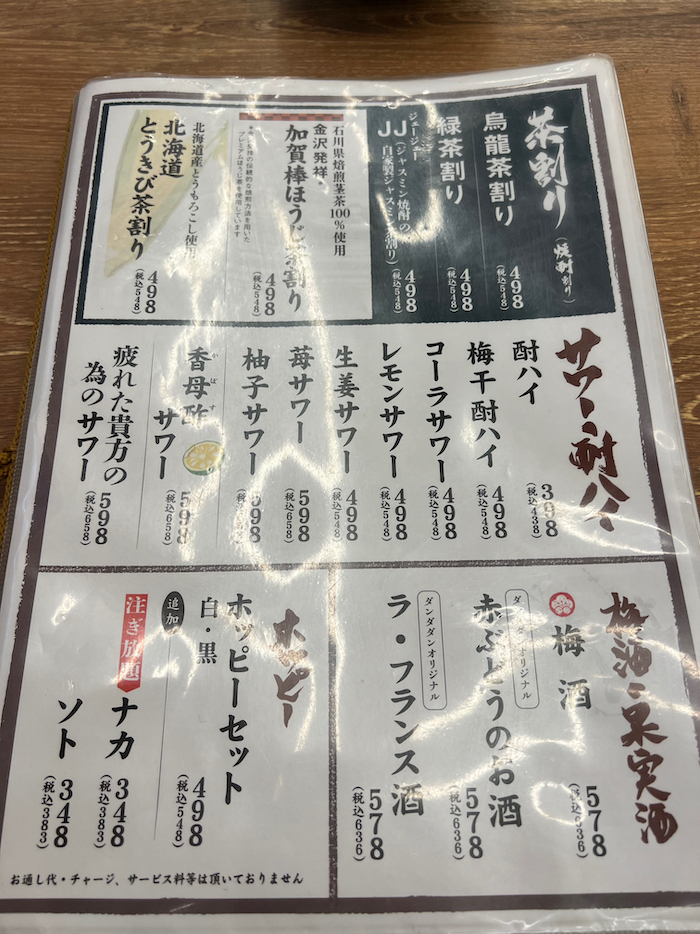 茶割り(焼酎割り)
烏龍茶割り
498
(税込548)
緑茶割り
498
(税込548)
ジェージェー
JJ(ジャスミン焼酎の
自家製ジャスミン茶割り)
498
(税込548)
石川県焙煎茎茶100%使用
金沢発祥・
加賀棒ほうじ茶割り
498
(税込548)
プレミアムほうじ茶を使用しています
北海道産とうもろこし使用
北海道
とうきび茶割り
498
(税込548)
サワー・酎ハイ
酎ハイ
398
(税込438)
梅干酎ハイ
498
(税込548)
コーラサワー
498
(税込548)
レモンサワー
498
(税込548)
生姜サワー
498
(税込548)
苺サワー
598
(税込658)
柚子サワー
598
(税込658)
かぼす
香母酢
サワー
598
(税込658)
疲れた貴方の
為のサワー
598
(税込658)
梅酒・果実酒
梅酒
578
(税込636)
ダンダダンオリジナル
赤ぶどうのお酒
578
(税込636)
ダンダダンオリジナル
ラ・フランス酒
578
(税込636)
ホッピー
ホッピーセット
白・黒
498
(税込548)
追加
注ぎ放題
ナカ
348
(税込383)
ソト
348
(税込383)
お通し代・チャージ、サービス料等は頂いておりません